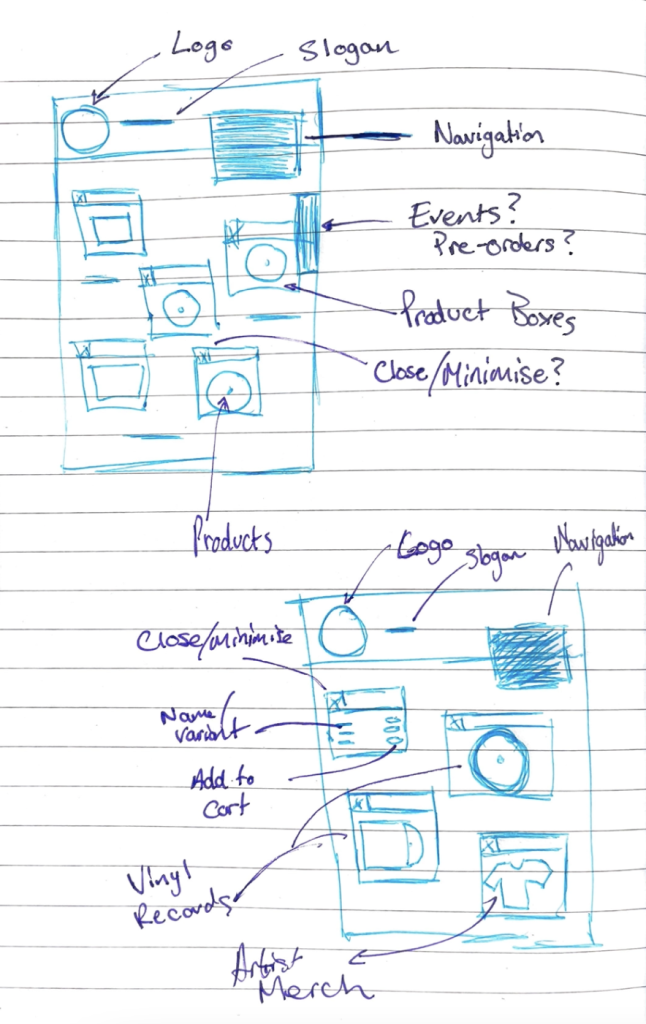 Logo
Slogan
Navigation
Events?
Pre-orders?
Product Boxes
Close/Minimise?
Products
Logo
Slogan
Navigation
Close/minimise
Name/
variant
Add to
Cart
Vinyl
Records
Artist
Merch